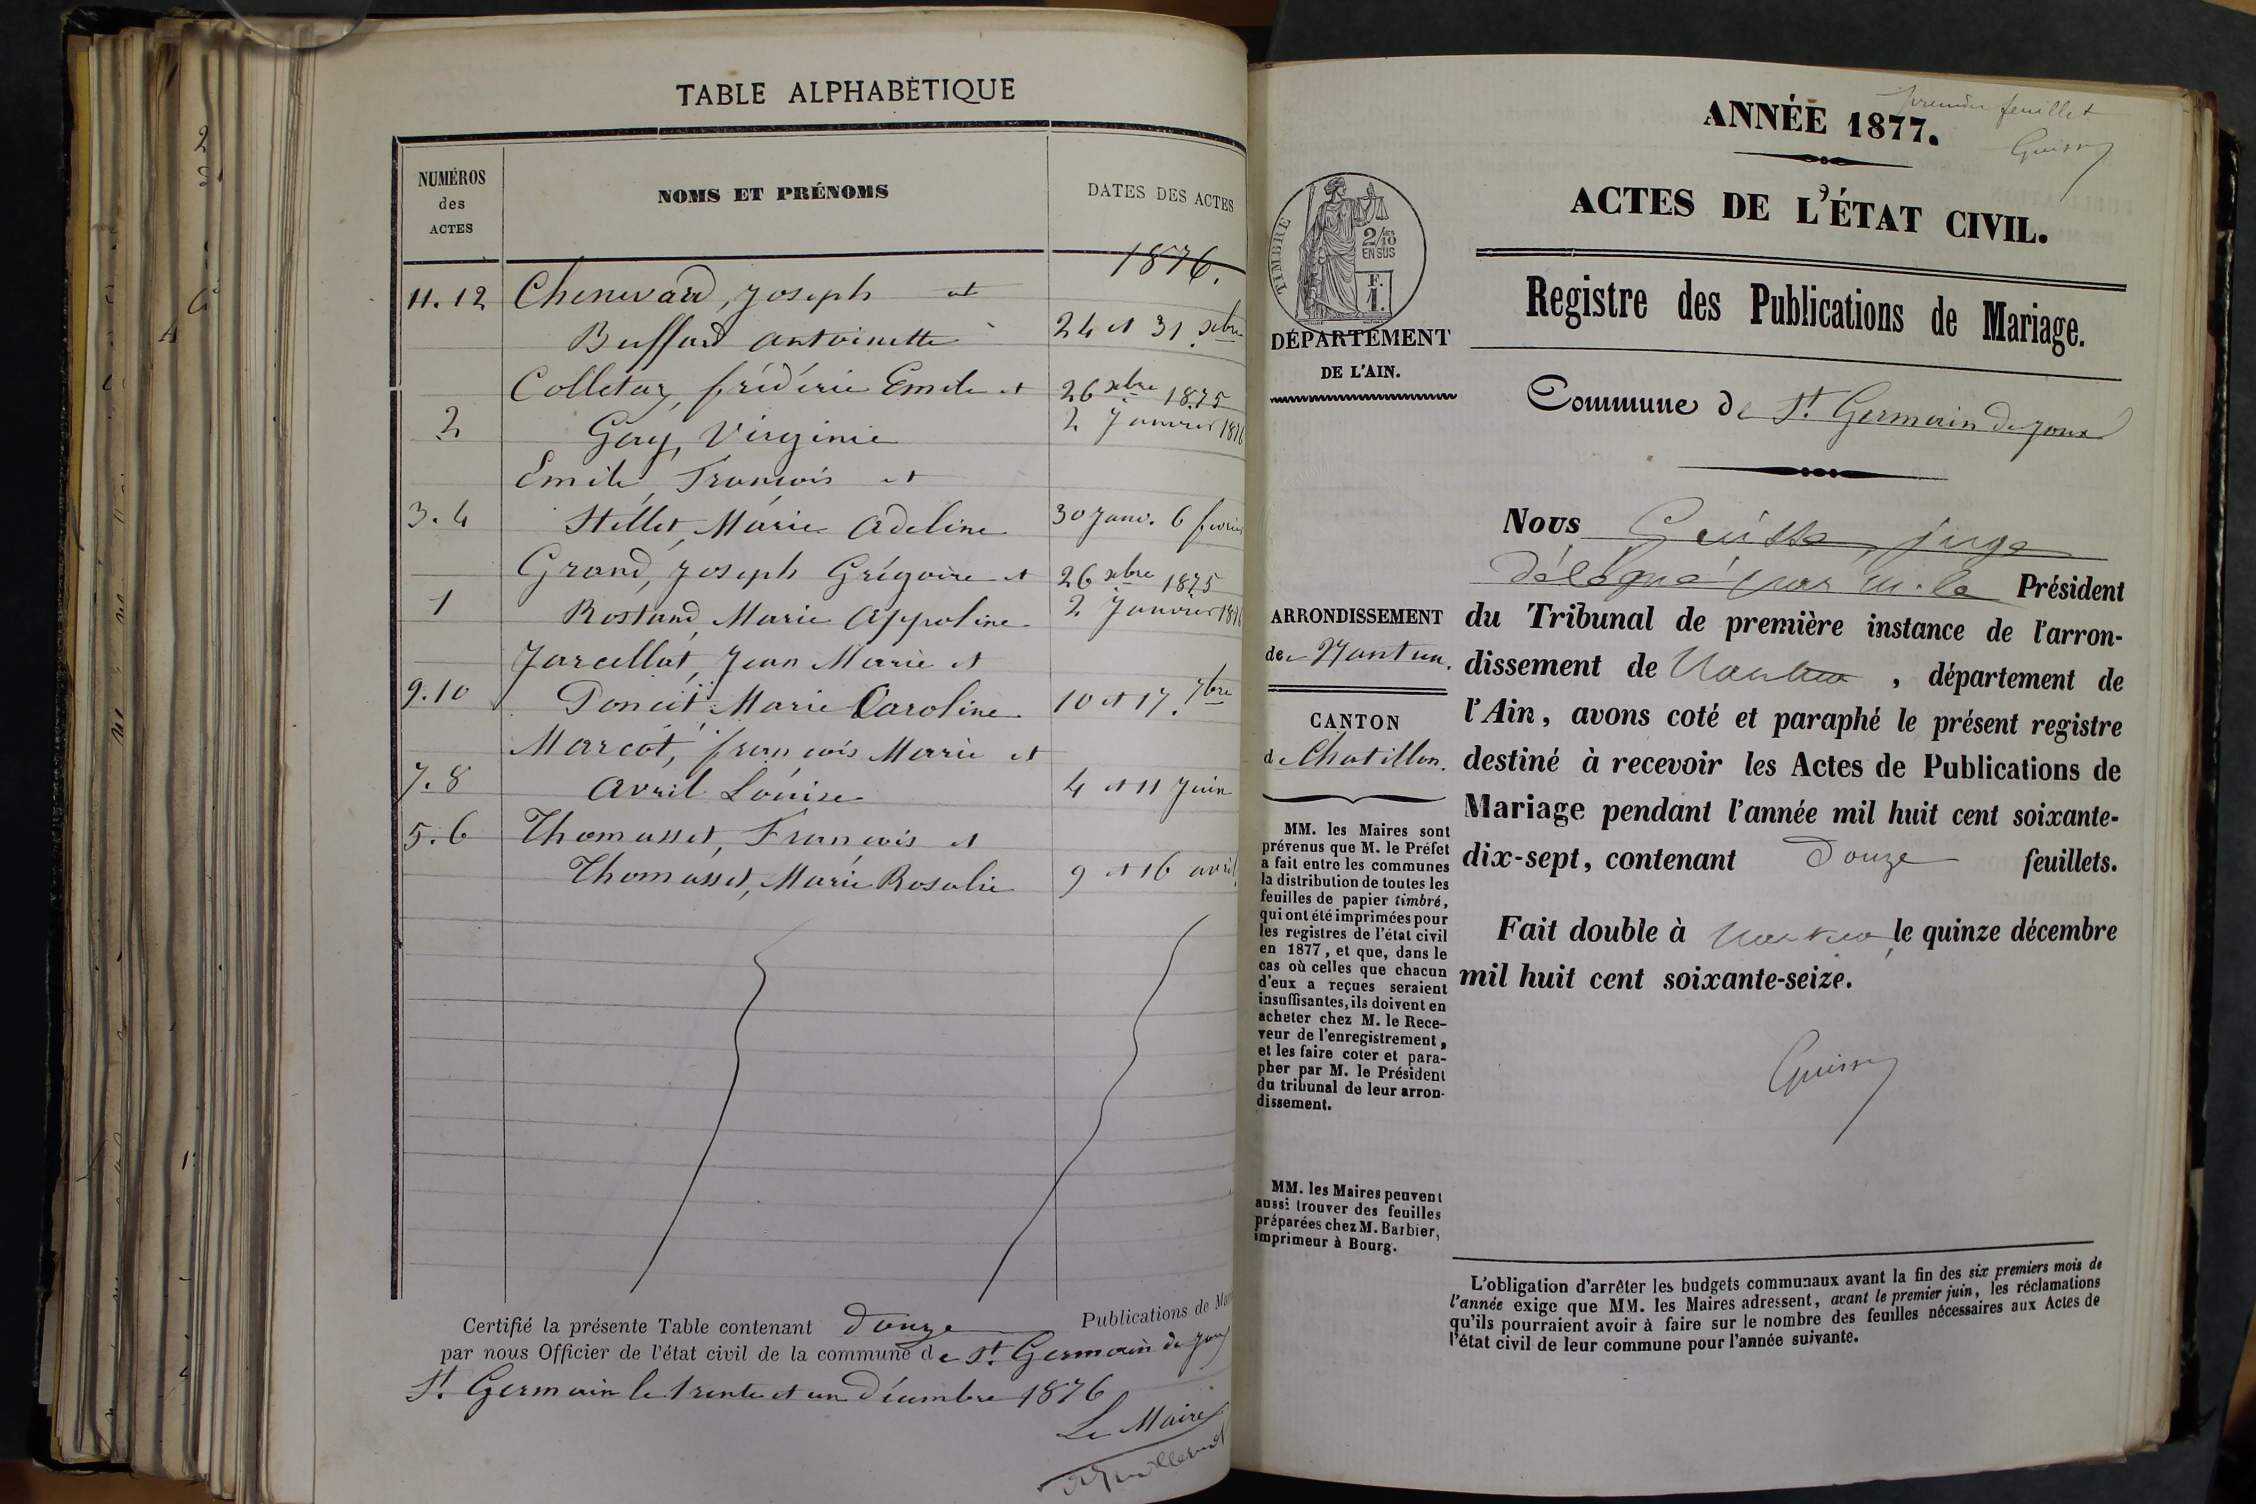 TABLE ALPHABÈTIQUE
NUMÉROS
des
ACTES
NOMS ET PRÉNOMS
DATES DES ACTES
1876.
11.12 Chenevard, Joseph et
Buffard Antoinette 24 et 31 xbre
Colletaz, frédéric Emile et 26 xbre 1875
2 Gay, Virginie 2 Janvier 1876
Emile, François et
3.4 Stillet, Marie Adeline 30 Janv. 6 fevrier
Grand, Joseph Grégoire et 26 xbre 1875
1 Rostand Marie Appoline 2 Janvier 1876
Jarcellat, Jean Marie et
9.10 Poncet Marie Caroline 10 et 17. 7bre
Marcot, françois Marie et
7.8 Avril Louise 4 et 11 Juin
5.6 Thomasset, François et
Thomasset, Marie Rosalie 9 et 16 avril.
Certifié la présente Table contenant douze Publications de
par nous Officier de l'état civil de la commune de St. Germain de Joux
St. Germain le trente et un Décembre 1876
Le Maire
premier feuillet
ANNÉE 1877.
ACTES DE L'ÉTAT CIVIL.
Registre des Publications de Mariage.
Commune de St. Germain de Joux
TIMBRE
2/10
EN SUS
F.
1.
DÉPARTEMENT
DE L'AIN.
ARRONDISSEMENT
de Nantua.
CANTON
de Chatillon.
MM. les Maires sont
prévenus que M. le Préfet
a fait entre les communes
la distribution de toutes les
feuilles de papier timbré,
qui ont été imprimées pour
les registres de l'état civil
en 1877, et que, dans le
cas où celles que chacun
d'eux a reçues seraient
insuffisantes, ils doivent en
acheter chez M. le Rece-
veur de l'enregistrement,
et les faire coter et para-
pher par M. le Président
du tribunal de leur arron-
dissement.
MM. les Maires peuvent
aussi trouver des feuilles
préparées chez M. Barbier,
imprimeur à Bourg.
Nous juge
Délégué par M. le Président
du Tribunal de première instance de l'arron-
dissement de Nantua, département de
l'Ain, avons coté et paraphé le présent registre
destiné à recevoir les Actes de Publications de
Mariage pendant l'année mil huit cent soixante-
dix-sept, contenant Douze feuillets.
Fait double à Nantua, le quinze décembre
mil huit cent soixante-seize.
L'obligation d'arrêter les budgets communaux avant la fin des six premiers mois de
l'année exige que MM. les Maires adressent, avant le premier juin, les réclamations
qu'ils pourraient avoir à faire sur le nombre des feuilles nécessaires aux Actes de
l'état civil de leur commune pour l'année suivante.